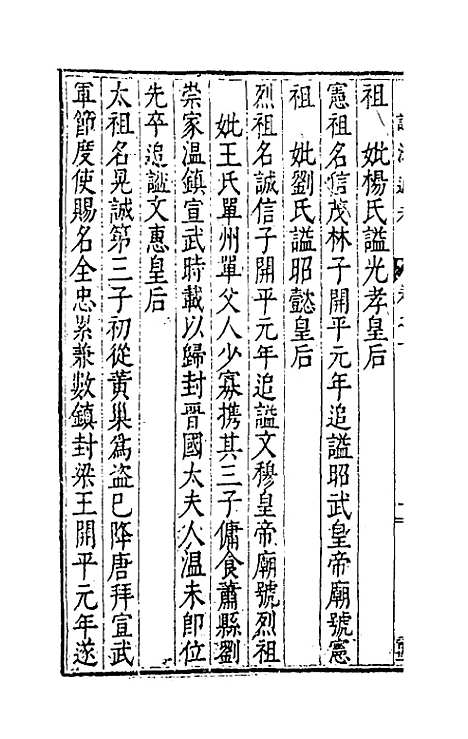 祖　妣楊氏謚光孝皇后
憲祖名信茂林子開平元年追謚昭武皇帝廟號憲
祖　妣劉氏謚昭懿皇后
烈祖名誠信子開平元年追謚文穆皇帝廟號烈祖
妣王氏單州單父人少寡携其三子傭食蕭縣劉
崇家溫鎮宣武時載以歸封晉國太夫人溫未即位
先卒追謚文惠皇后
太祖名晃誠第三子初從黃巢為盜巳降唐拜宣武
軍節度使賜名全忠累兼數鎮封梁王開平元年遂